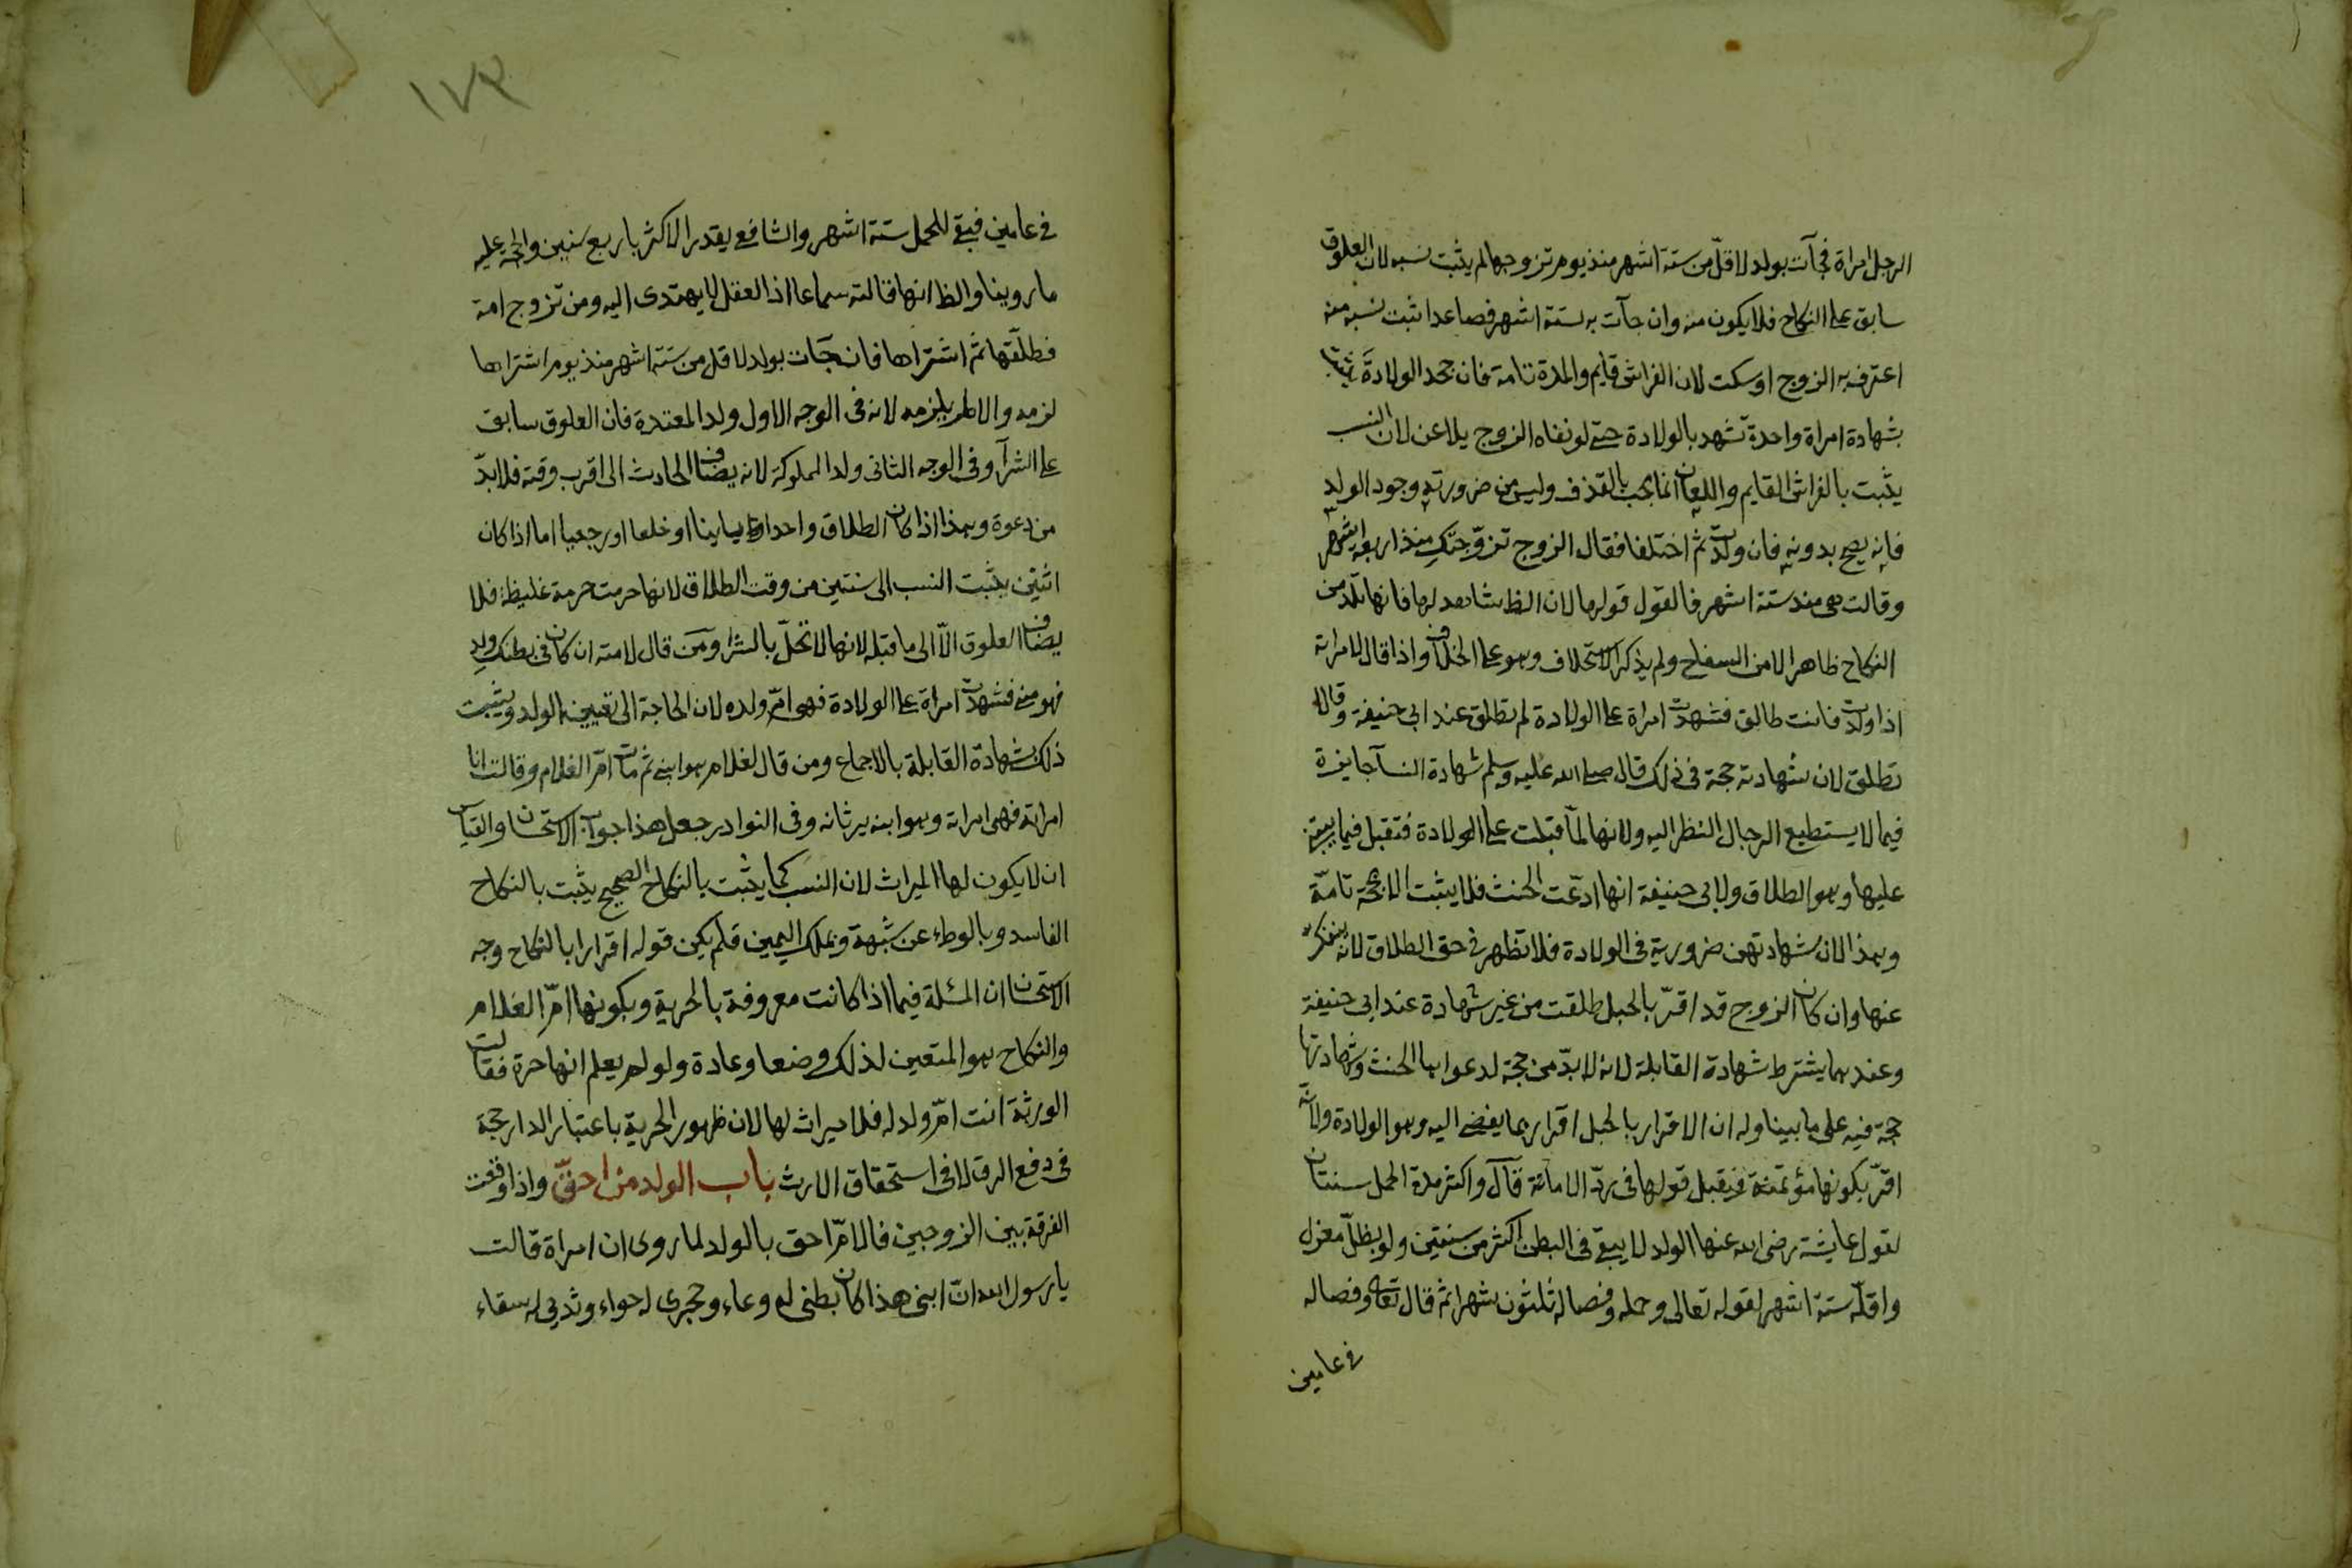 الرجل امراة فجآت بولد لاقلّ من ستة اشهر منذ يوم تزوجها لم يثبت نسبه لان العلوق
سابق على النكاح فلا يكون منه وان جآت به لستة اشهر فصاعدا ثبت نسبه منه
اعترف به الزوج او سكت لان الفراش قايم والمدة تامة فان جحد الولادة يثبت
بشهادة امراة واحدة تشهد بالولادة حتى لو نفاه الزوج يلاعن لان النسب
يثبت بالفراش القايم واللعان انما يجب بالقذف وليس من ضرورته وجود الولد
فانه يصح بدونه فان ولدت ثم اختلفا فقال الزوج تزوّجتك منذ اربعة اشهر
وقالت هى منذ ستة اشهر فالقول قولها لان الظ شاهد لها فانها تلد من
النكاح ظاهرا لا من السفاح ولم يذكر الاستحلاف وهو على الخلاف واذا قال لامراته
اذا ولدت فانت طالق فشهدت امراة على الولادة لم تطلق عند ابى حنيفة وقالا
تطلق لان شهادته حجة فى ذلك قال صلى الله عليه وسلم شهادة النسآ جايزة
فيما لا يستطيع الرجال النظر اليه ولانها لمّا قبلت على الولادة فتقبل فيما يبتنى
عليها وهو الطلاق ولابى حنيفة انها ادّعت الحنث فلا يثبت الا بحجة تامّة
وهذا لان شهادتهن ضرورية فى الولادة فلا تظهر فى حق الطلاق لانه ينفكّ
عنها وان كان الزوج قد اقرّ بالحبل طلقت من غير شهادة عند ابى حنيفة
وعندهما يشترط شهادة القابلة لانه لا بدّ من حجة لدعواها الحنث وشهادتها
حجة فيه على ما بينا وله ان الاقرار بالحبل اقرار بما يفضى اليه وهو الولادة ولانّه
اقرّ بكونها مؤتمنة فيقبل قولها فى ردّ الامانة قآل واكثر مدة الحمل سنتان
لقول عايشة رضى الله عنها الولد لا يبقى فى البطن اكثر من سنتين ولو بظلّ مغزل
واقلّه ستة اشهر لقوله تعالى وحمله وفصاله ثلثون شهرا ثم قال تعالى وفصاله
فى عامين
١٧٣
فى عامين فبقى للحمل ستة اشهر والشافعى يقدر الاكثر باربع سنين والحجة عليه
ما روينا والظ انها قالته سماعا اذ العقل لا يهتدى اليه ومن تزوج امة
فطلّقها ثم اشتراها فان جَآت بولد لاقل من ستة اشهر منذ يوم اشتراها
لزمه والا لم يلزمه لانه فى الوجه الاول ولد المعتدة فان العلوق سابق
على الشرآ وفى الوجه الثانى ولد المملوكة لانه يضاف الحادث الى اقرب وقته فلا بدّ
من دعوة وهذا اذا كان الطلاق واحدا باينا او خلعا او رجعيا اما اذا كان
اثنتين يثبت النسب الى سنتين من وقت الطلاق لانها حرمت حرمة غليظة فلا
يضاف العلوق الّا الى ما قبله لانها لا تحلّ بالشرا ومَن قال لامته ان كان فى بطنك ولد
فهو منى فشهدت امراة على الولادة فهى امّ ولده لان الحاجة الى تعيين الولد ويثبت
ذلك بشهادة القابلة بالاجماع ومن قال لغلام هو ابنى ثم مات امّ الغلام وقالت انا
امراته فهى امراته وهو ابنه يرثانه وفى النوادر جعل هذا جواب الاستحسان والقياس
ان لا يكون لها الميراث لان النسب كما يثبت بالنكاح الصحيح يثبت بالنكاح
الفاسد وبالوطء عن شبهة وبملك اليمين فلم يكن قوله اقرارا بالنكاح وجه
الاستحسان ان المسئلة فيما اذا كانت معروفة بالحرية وبكونها امّ الغلام
والنكاح هو المتعين لذلك وضعا وعادة ولو لم يعلم انها حرة فقالت
الورثة انت امّ ولد له فلا ميراث لها لان ظهور الحرية باعتبار الدار حجة
فى دفع الرق لا فى استحقاق الارث باب الولد من احقّ واذا وقعت
الفرقة بين الزوجين فالامّ احق بالولد لما روى ان امراة قالت
يا رسول الله انّ ابنى هذا كان بطنى له وعاء وحجرى له حواء وثديى له سقاء